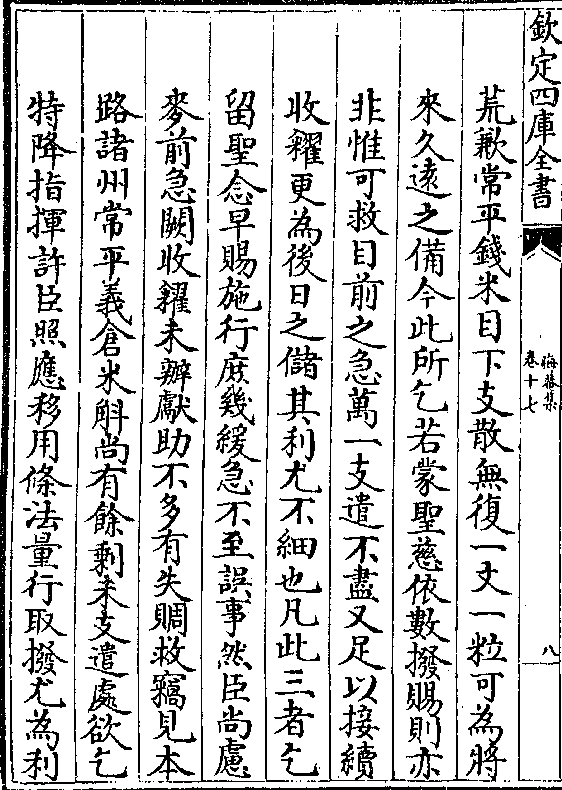 欽定四庫全書
晦菴集
卷十七
八
荒歉常平錢米目下支散無復一文一粒可為將
來久遠之備今此所乞若蒙聖慈依數撥賜則亦
非惟可救目前之急萬一支遣不盡又足以接續
收糴更為後日之儲其利尤不細也凡此三者乞
留聖念早賜施行庶幾緩急不至誤事然臣尚慮
麥前急闕收糴未辦獻助不多有失賙救竊見本
路諸州常平義倉米斛尚有餘剩未支遣處欲乞
特降指揮許臣照應移用條法量行取撥尤為利